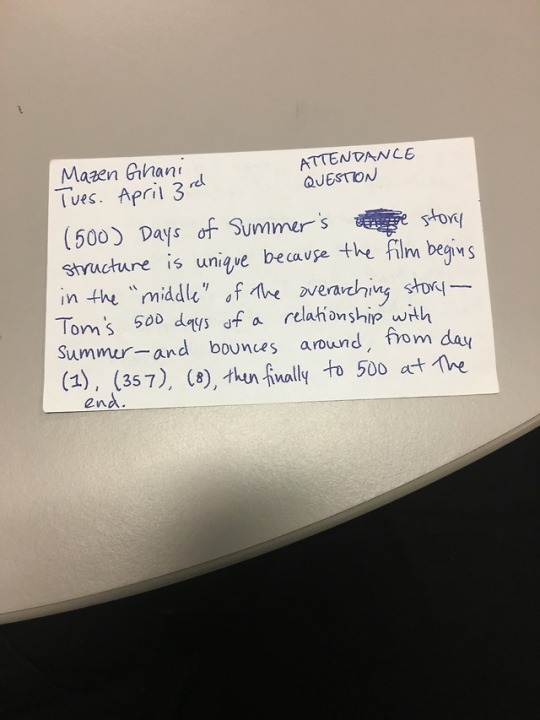 Mazen Ghani
Tues. April 3rd
ATTENDANCE
QUESTION
(500) Days of Summer's story
structure is unique because the film begins
in the "middle" of the overarching story—
Tom's 500 days of a relationship with
Summer—and bounces around, from day
(1), (357), (8), then finally to 500 at the
end.